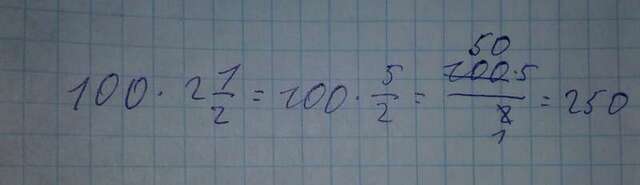 100 · 2 1/2 = 100 · 5/2 = 50 100·5 / 2 1 = 250